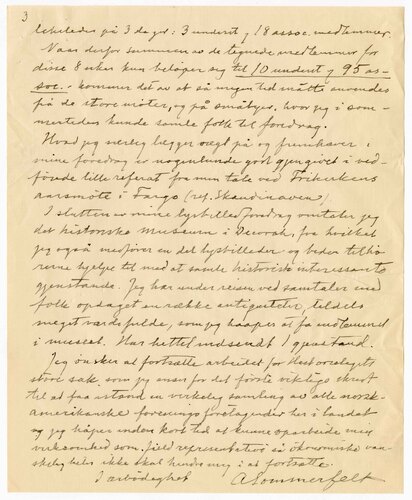 3
lokeledes på 3 dage: 3 underst. og 18 assoc. medlemmer.
Naar derfor summen av de tegnede medlemmer for
disse 8 uker kun beløper sig til 10 underst og 95 as-
soc. kommer det av at så megen tid måtte anvendes
på de store møter, og på småbyer, hvor jeg i som-
mertiden kunde samle folk til foredrag.
Hvad jeg særlig lægger vægt på og fremhæver i
mine foredrag er nogenlunde godt gjengivet i ved-
føiede lille referat fra min tale ved Frikirkens
aarsmöte i Fargo (ref. Skandinaven).
I slutten av mine lysbilledforedrag omtaler jeg
det historiske museum i Decorah, fra hvilket
jeg også medfører en del lysbilleder og beder tilhö-
rerne hjelpe til med at samle historisk interessante
gjenstande. Jeg har under reisen ved samtaler med
folk opdaget en række antiquiteter, tildels
meget værdifulde, som jeg haaper at få indlemmet
i museet. Har hittil indsendt 1 gjenstand.
Jeg ønsker at fortsætte arbeidet for selskapets
store sak, som jeg anser for det første viktige skridt
til at faa istand en virkelig samling av alle norsk-
amerikanske forenings foretagender her i landet
og jeg håper inden kort tid at kunne oparbeide min
virksomhed som field representative så økonomiske van-
skeligheter ikke skal hindre mig i at fortsætte.
I ærbødighet A Sommerfelt